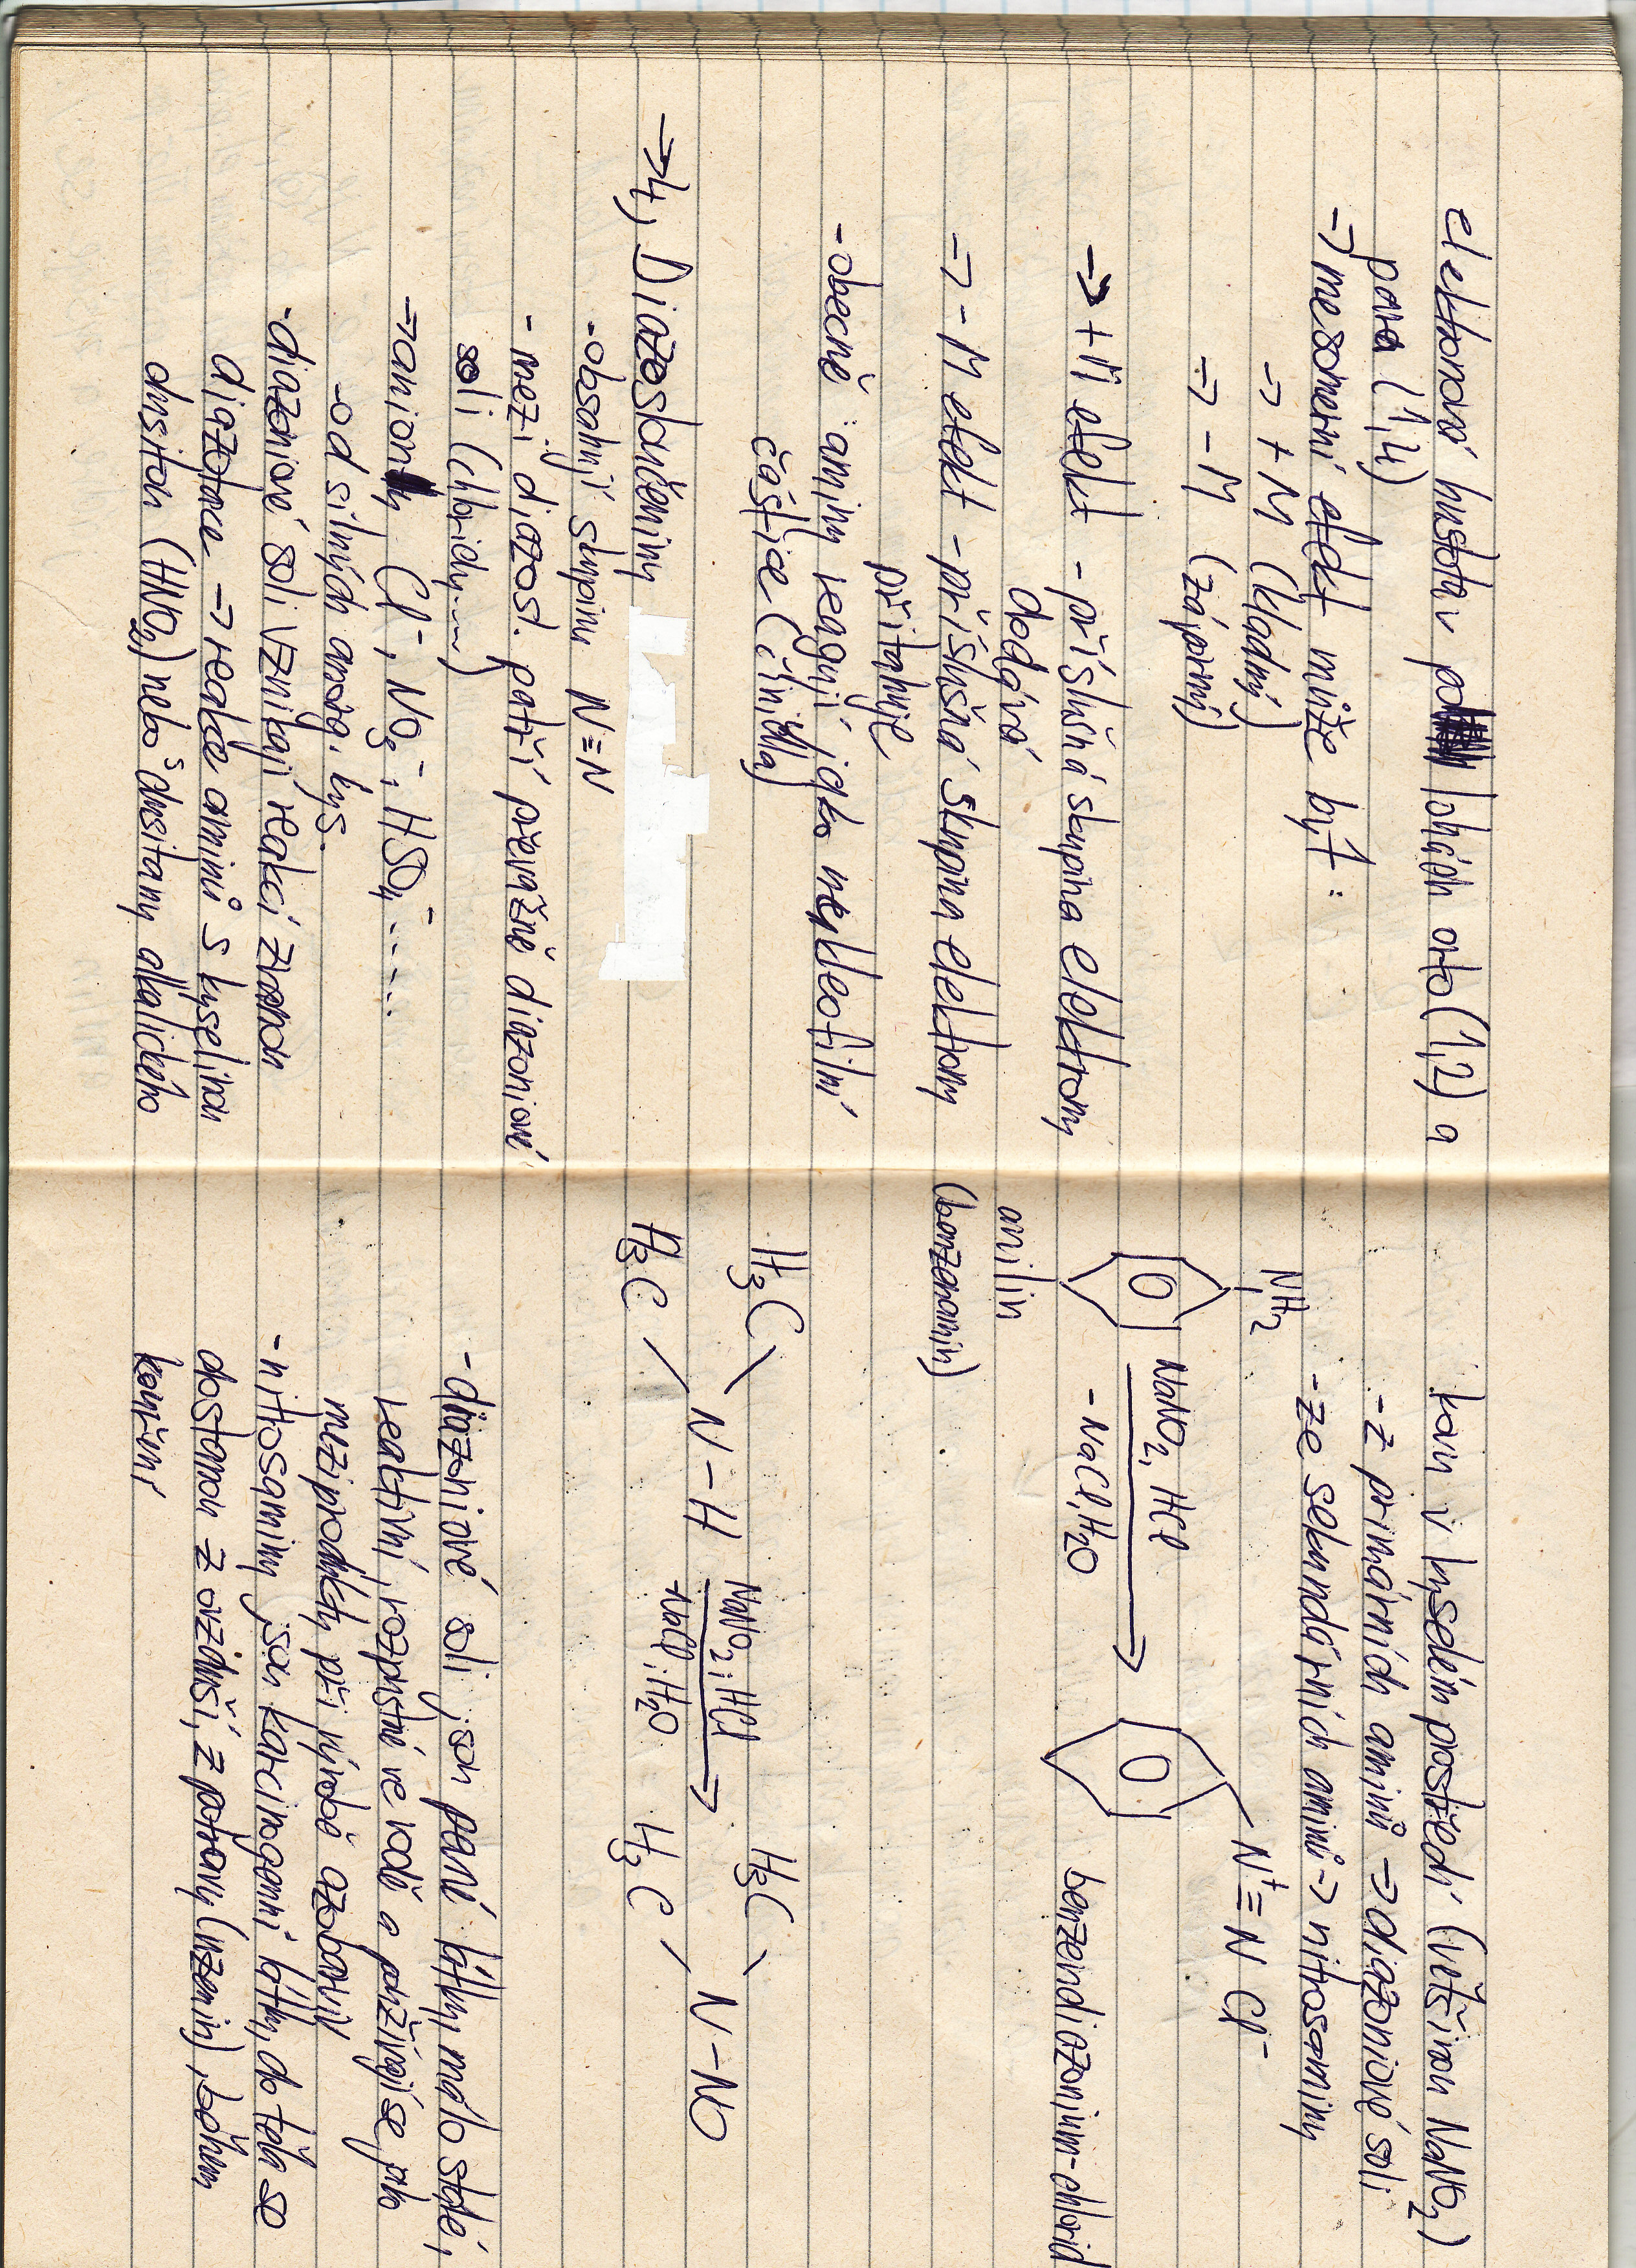 elektronové hustotu po lohách orto(1,2) a
para (1,4)
=> mesomerní efekt může být:
=> +M (kladný)
=> -M (záporný)
=> +M efekt - příslušná skupina elektrony
dodává
=> -M efekt - příslušná skupina elektrony
přitahuje
- obecně aminy reagují jako nukleofilní
částice (činidla)
=> 4, Diazosloučeniny
- obsahují skupinu N≡N
- mezi diazosl. patří převážně diazoniové
soli (chloridy....)
=> anionty Cl⁻, NO₃⁻, HSO₄⁻.....
- od silných anorg. kys.
- diazoniové soli vznikají reakcí zvanou
diazotace => reakce aminů s kyselinou
dusitou (HNO₂) nebo s dusitany alkalického
kovu v kyselém prostředí (většinou NaNO₂)
- z primárních aminů => diazoniové soli
- ze sekundárních aminů => nitrosaminy
NH₂
NaNO₂, HCl
- NaCl, H₂O
N⁺≡N Cl⁻
anilin
(benzenamin)
benzendiazonium-chlorid
H₃C
H₃C
N-H
NaNO₂, HCl
-NaCl, H₂O
H₃C
H₃C
N-NO
- diazoniové soli jsou pevné látky, málo stálé,
reaktivní, rozpustné ve vodě a používají se jako
meziprodukty při výrobě azobarviv
- nitrosaminy jsou karcinogenní látky, do těla se
dostanou z ovzduší, z potravy (uzeniny), během
kouření